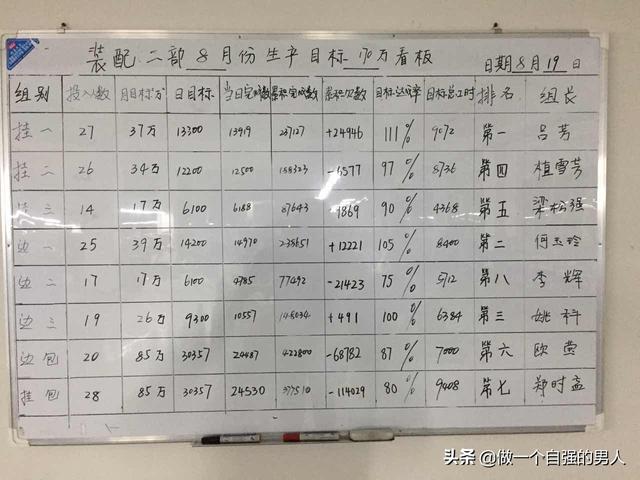 装配二部8月份生产目标170万看板 日期8月19日
组别 投入数 月目标"万" 日目标 当日完成数 累积完成数 累积欠数 目标达成率 目标总工时 排名 组长
挂一 27 37万 13300 13919 237127 +24946 111% 9072 第一 吕芳
挂二 26 34万 12200 12500 158323 -6577 97% 8736 第四 植雪芳
挂三 14 17万 6100 6188 87643 -9869 90% 4368 第五 梁松强
边一 25 39万 14200 14970 238651 +12221 105% 8400 第二 何玉玲
边二 17 17万 6100 4985 77492 -21423 75% 5712 第八 李辉
边三 19 26万 9300 10557 148034 +491 100% 6384 第三 姚科
边包 20 85万 30357 24487 422800 -68782 87% 7000 第六 欧
挂包 28 85万 30357 24530 377510 -114029 80% 9408 第七 郑时
头条 @做一个自强的男人